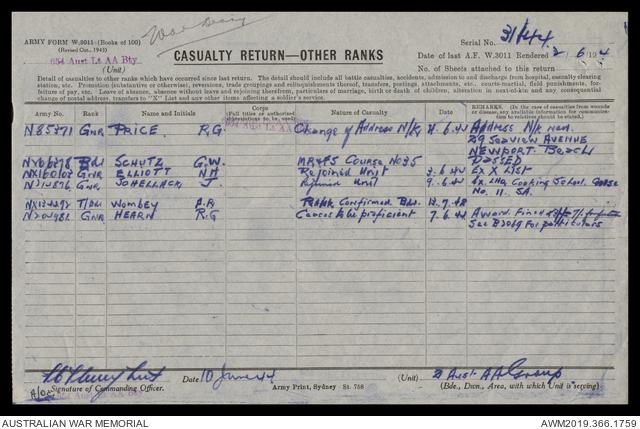 War Diary
ARMY FORM W.3011 (Books of 100)
(Revised Oct., 1943)
654 Aust Lt AA Bty
(Unit)
CASUALTY RETURN—OTHER RANKS
Serial No. 31/44
Date of last A.F. W.3011 Rendered 2. 6 194 4
No. of Sheets attached to this return
Detail of casualties to other ranks which have occurred since last return. The detail should include all battle casualties, accidents, admission to and discharge from hospital, casualty clearing
station, etc. Promotion (substantive or otherwise), reversions, trade groupings and relinquishments thereof, transfers, postings, attachments, etc., courts-martial, field punishments, for-
feiture of pay, etc. Leave of absence, absence without leave and rejoining therefrom, particulars of marriage, birth or death of children, alteration in next-of-kin and any consequential
change of postal address, transfers to "X" List and any other items affecting a soldier's service.
Army No. Rank Name and Initials Corps (Full titles or authorised abbreviations to be used) Nature of Casualty Date of Casualty REMARKS. (In the case of casualties from wounds or disease, any available information for communication to relation should be stated.)
Gnr PRICE R.G. Change of Address N/K 6.44 Address N/K now
29 Seaview Avenue
Newport Beach
Bdr SCHUTZ G.W. Course No 35 Passed
ELLIOTT NH Rejoined Unit 3.6.44 Ex X List
Gnr J. Rejoined Unit 9.6.44 Ex LHQ Cooking School Course
No. 11. SA.
T/Bdr WOMBEY Rank Confirmed Bdr.
Gnr HEARN R.G 7.6.44 Award. Fined
See B2069 For particulars
Signature of Commanding Officer.
654 Aust Lt AA Bty
Date 10 June 44
Army Print, Sydney St. 758
(Unit) 2 Aust AA Group
(Bde., Dmn., Area, with which Unit is serving)
AUSTRALIAN WAR MEMORIAL
AWM2019.366.1759